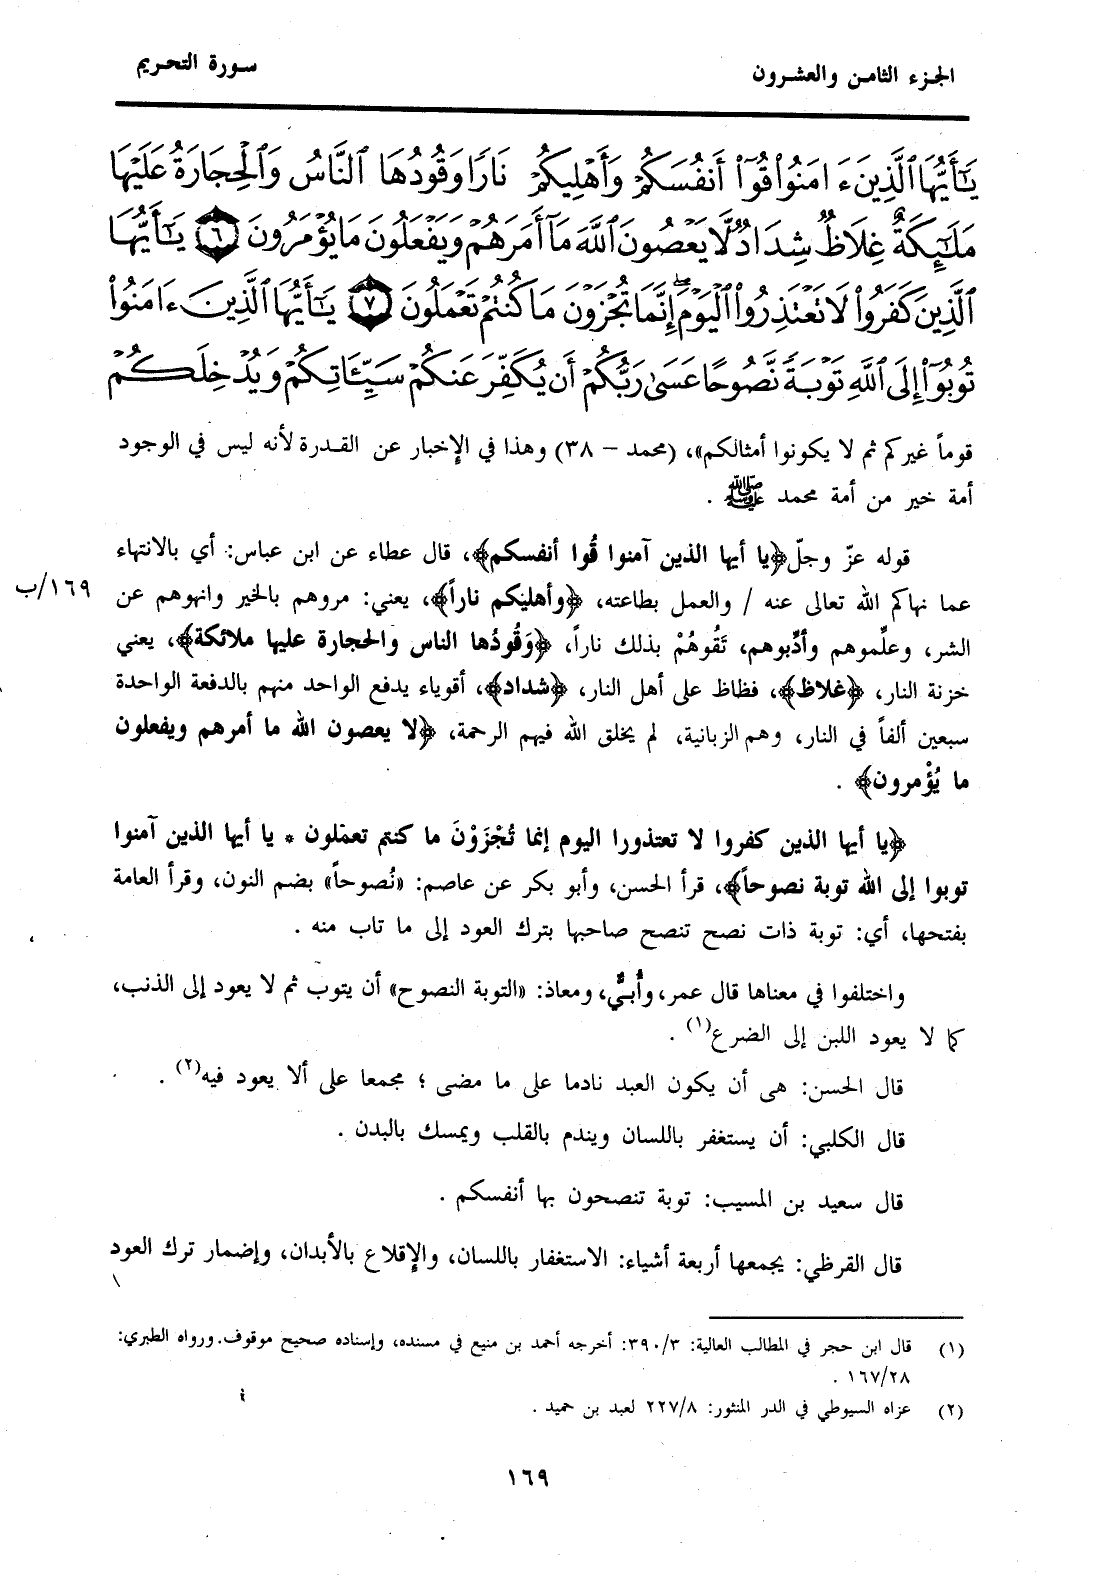 الجزء الثامن والعشرون
سورة التحريم
يَـٰٓأَيُّهَا ٱلَّذِينَ ءَامَنُوا۟ قُوٓا۟ أَنفُسَكُمْ وَأَهْلِيكُمْ نَارًا وَقُودُهَا ٱلنَّاسُ وَٱلْحِجَارَةُ عَلَيْهَا
مَلَـٰٓئِكَةٌ غِلَاظٌ شِدَادٌ لَّا يَعْصُونَ ٱللَّهَ مَآ أَمَرَهُمْ وَيَفْعَلُونَ مَا يُؤْمَرُونَ ٦ يَـٰٓأَيُّهَا
ٱلَّذِينَ كَفَرُوا۟ لَا تَعْتَذِرُوا۟ ٱلْيَوْمَ ۖ إِنَّمَا تُجْزَوْنَ مَا كُنتُمْ تَعْمَلُونَ ٧ يَـٰٓأَيُّهَا ٱلَّذِينَ ءَامَنُوا۟
تُوبُوٓا۟ إِلَى ٱللَّهِ تَوْبَةً نَّصُوحًا عَسَىٰ رَبُّكُمْ أَن يُكَفِّرَ عَنكُمْ سَيِّـَٔاتِكُمْ وَيُدْخِلَكُمْ
قوماً غيركم ثم لا يكونوا أمثالكم»، (محمد – ٣٨) وهذا في الإخبار عن القدرة لأنه ليس في الوجود
أمة خير من أمة محمد ﷺ .
قوله عزّ وجلّ ﴿يا أيها الذين آمنوا قُوا أنفسكم﴾، قال عطاء عن ابن عباس: أي بالانتهاء
عما نهاكم الله تعالى عنه / والعمل بطاعته، ﴿وأهليكم ناراً﴾، يعني: مروهم بالخير وانهوهم عن
١٦٩/ب
الشر، وعلِّموهم وأدِّبوهم، تَقُوهُمْ بذلك ناراً، ﴿وَقُودُها الناس والحجارة عليها ملائكة﴾، يعني
خزنة النار، ﴿غلاظ﴾، فظاظ على أهل النار، ﴿شداد﴾، أقوياء يدفع الواحد منهم بالدفعة الواحدة
سبعين ألفاً في النار، وهم الزبانية، لم يخلق الله فيهم الرحمة، ﴿لا يعصون الله ما أمرهم ويفعلون
ما يُؤْمرون﴾ .
﴿يا أيها الذين كفروا لا تعتذورا اليوم إنما تُجْزَوْنَ ما كنتم تعمَلون * يا أيها الذين آمنوا
توبوا إلى الله توبة نصوحاً﴾، قرأ الحسن، وأبو بكر عن عاصم: «نُصوحاً» بضم النون، وقرأ العامة
بفتحها، أي: توبة ذات نصح تنصح صاحبها بترك العود إلى ما تاب منه .
واختلفوا في معناها قال عمر، وأُبيٌّ، ومعاذ: «التوبة النصوح» أن يتوب ثم لا يعود إلى الذنب،
كما لا يعود اللبن إلى الضرع(١) .
قال الحسن: هى أن يكون العبد نادما على ما مضى ؛ مجمعا على ألا يعود فيه(٢) .
قال الكلبي: أن يستغفر باللسان ويندم بالقلب ويمسك بالبدن .
قال سعيد بن المسيب: توبة تنصحون بها أنفسكم .
قال القرظي: يجمعها أربعة أشياء: الاستغفار باللسان، والإقلاع بالأبدان، وإضمار ترك العود
(١) قال ابن حجر في المطالب العالية: ٣٩٠/٣: أخرجه أحمد بن منيع في مسنده، وإسناده صحيح موقوف. ورواه الطبري:
١٦٧/٢٨ .
(٢) عزاه السيوطي في الدر المنثور: ٢٢٧/٨ لعبد بن حميد .
١٦٩